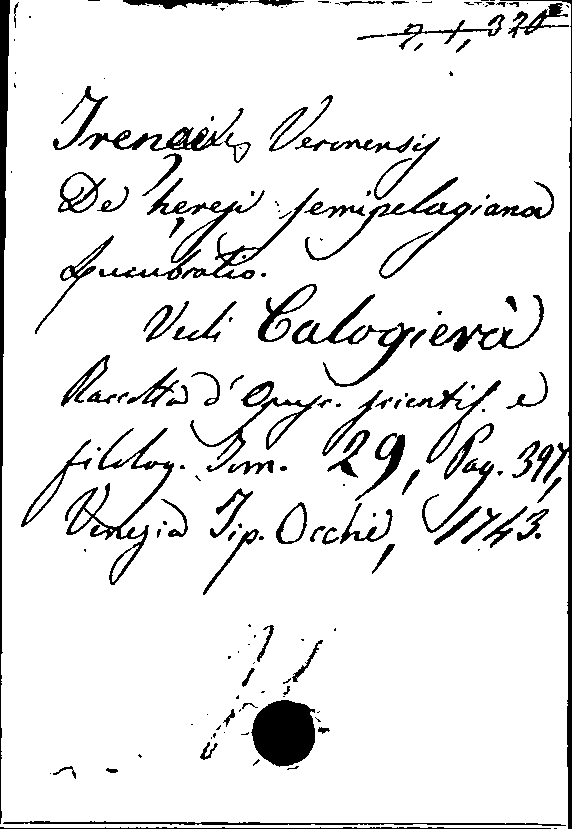 2, 1, 320
Irenaeus Veronensis
De heresi semipelagiana
Lucubratio.
Vedi Calogierà
Raccolta d'Opusc. scientif. e
filolog. Tom. 29, Pag. 397,
Venezia Tip. Occhi, 1743.